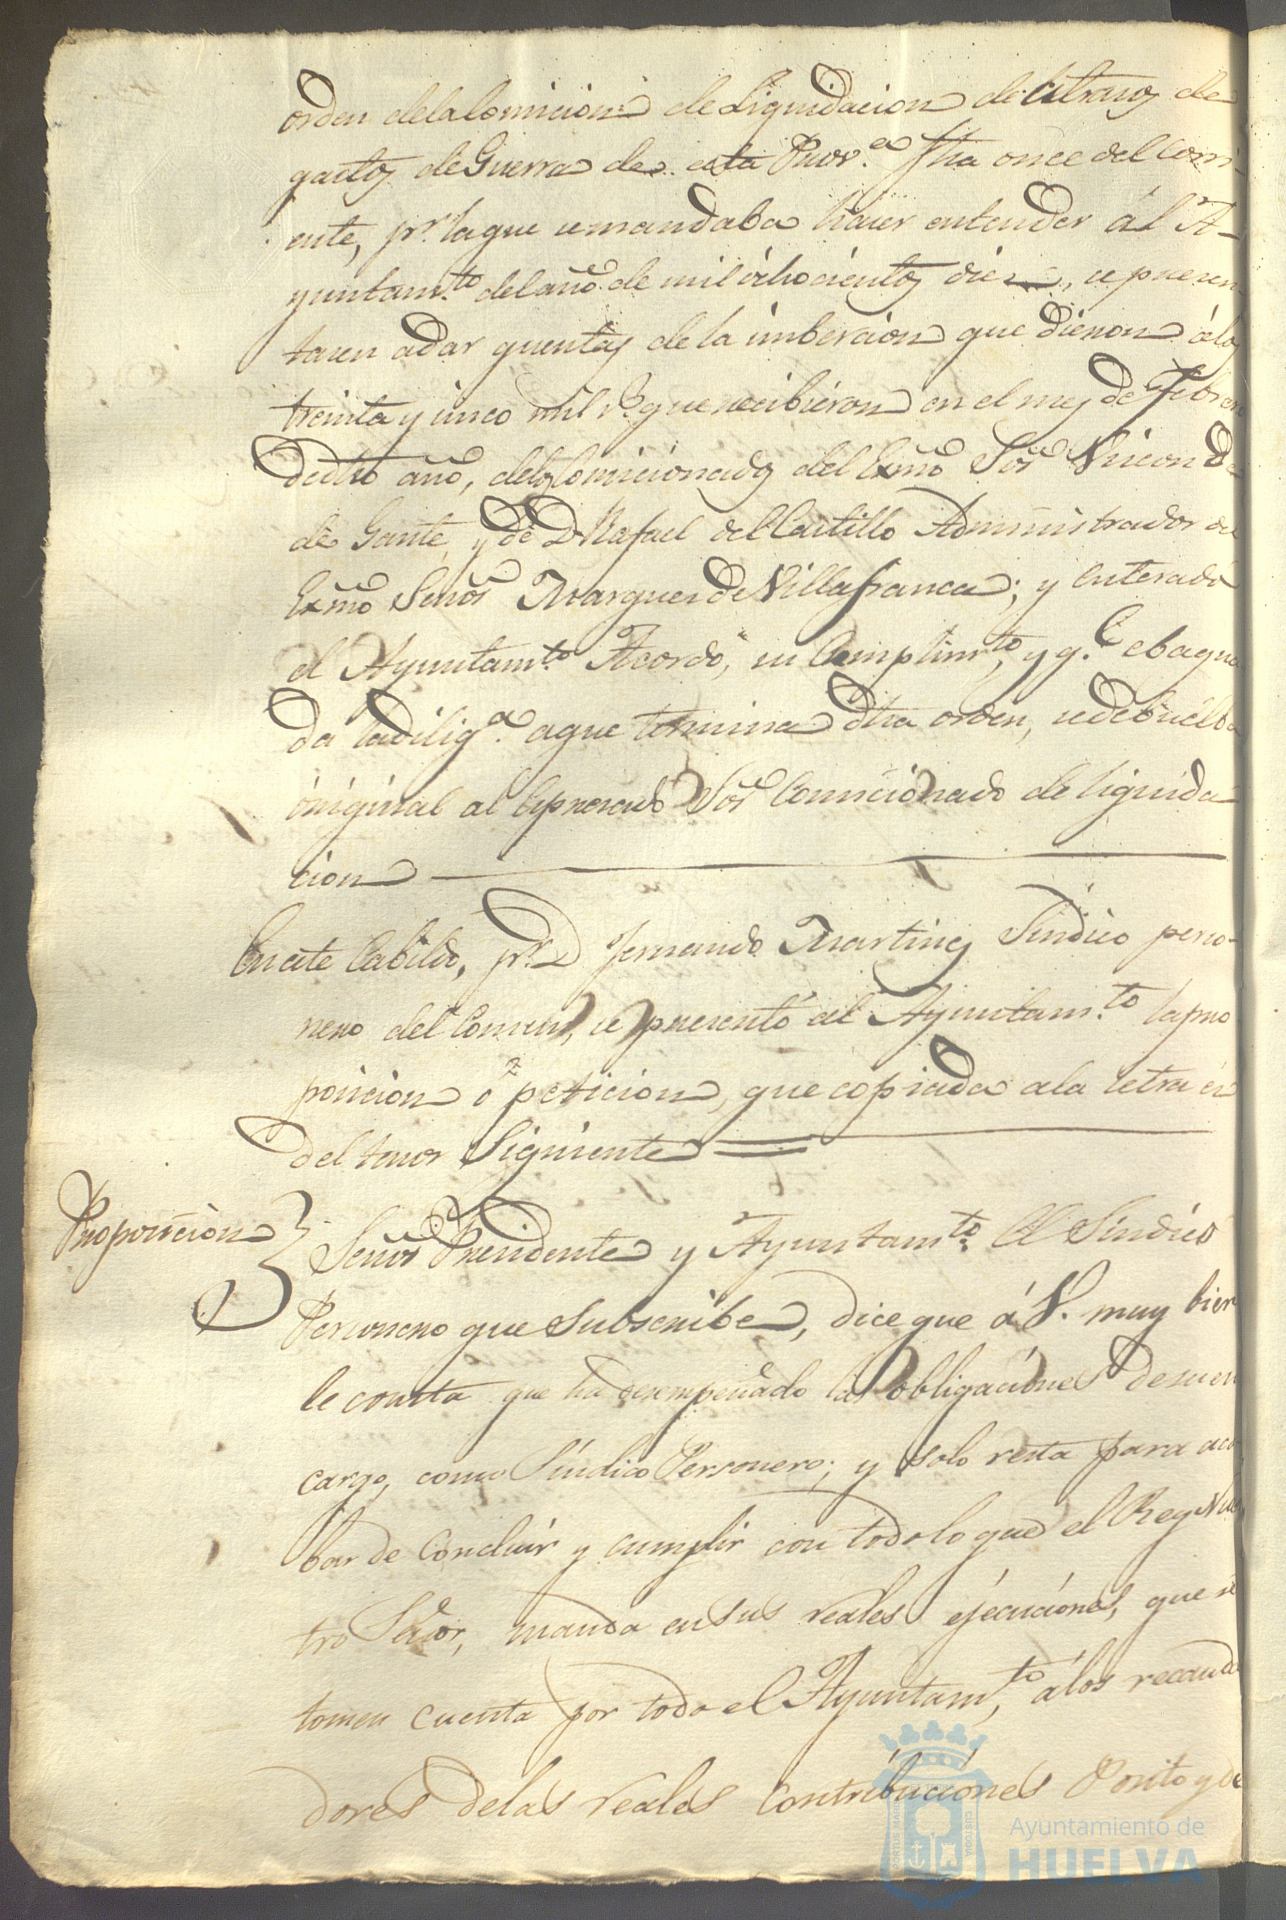 orden dela Comicion de Liquidacion de Atrasos de
gastos de Guerra de esta Prov.ª fha once del corri-
ente, pr. la que se mandaba hacer entender ál A-
yuntam.to del año de mil ochocientos diez, se presen-
tasen adar quentas de la imbercion que dieron álos
treinta y cinco mil r.s que recibieron en el mes de Febrero
de dho año, delos Comicionados del Exmo Sor. Vizconde
de Gante, y de Dn Rafael del Castillo Administrador del
Exmo Señor Marques de Villafranca; y enterado
el Ayuntam.to Acordó, su Cumplim.to, y q.e ebaqua
da la dilig.a aque termina dha orden, se debuelba
original al Expresado Sor. Comicionado de liquida
cion
En este Cabildo, pr. Dn Fernando Martinez Sindico perso-
nero del Comun, se presentó al Ayuntam.to la pro
posicion ó peticion, que copiada ala letra es
del tenor Siguiente
Proposicion
Señor Presidente y Ayuntam.to El Sindico
Personero que subscribe, dice que á V. muy bien
le consta que ha desempeñado las obligaciones de su en
cargo, como Síndico Personero; y solo resta para aca
bar de Concluir y cumplir con todo lo que el Rey Nues
tro Señor, manda en sus reales ejécuciónes, que se
tomen cuenta por todo el Ayuntam.to, álos recauda
dores de las reales Contribuciónes Posito y de
Ayuntamiento de
HUELVA